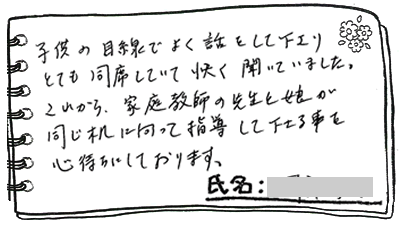 子供の目線でよく話をして下さり
とても同席していて快く聞いていました。
これから、家庭教師の先生と娘が
同じ机に向って指導して下さる事を
心待ちにしております。
氏名: